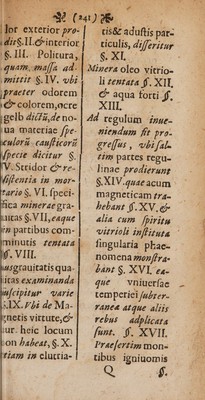 (241)
lor exterior pro-
dit §. II. & interior
§. III. Politura,
quam massa ad-
mittit §. IV. vbi
praeter odorem
& colorem, ocre
gelb dicta, de no-
ua materiae spe-
culorũ causticorũ
specie dicitur §.
V. Stridor & re-
sistentia in mor-
tario §. VI. speci-
fica minerae gra-
uitas §. VII, eaque
in partibus com-
minutis tentata
§. VIII.
grauitatis qua-
litas examinanda
suscipitur varie
§. IX. Vbi de Ma-
gnetis virtute, &
ur. heic locum
non habeat, §. X.
etiam in eluttia-
tis & adustis par-
ticulis, disseritur
§. XI.
Minera oleo vitrio-
li tentata §. XII.
& aqua forti §.
XIII.
Ad regulum inue-
niendum fit pro-
gressus, vbi sal-
tim partes regu-
linae prodierunt
§. XIV. quae acum
magneticam tra-
hebant §. XV. &
alia cum spiritu
vitrioli instituta
singularia phae-
nomena monstra-
bant §. XVI. ea-
que vniuersae
temperiei subter-
raneae atque aliis
rebus adplicata
sunt. §. XVII.
Praesertim mon-
tibus igniuomis
Q §.